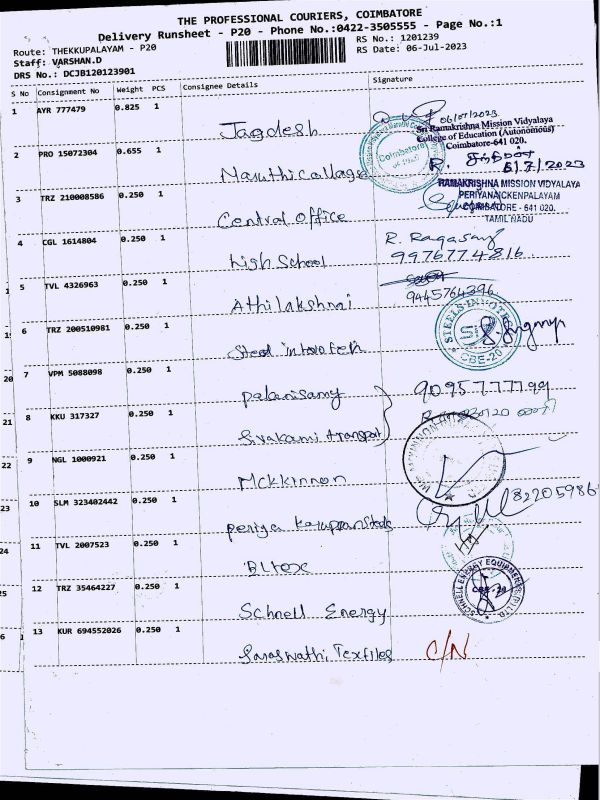 THE PROFESSIONAL COURIERS, COIMBATORE
Delivery Runsheet - P20 - Phone No.:0422-3505555 - Page No.:1
Route: THEKKUPALAYAM - P20
Staff: VARSHAN.D
DRS No.: DCJB120123901
RS No.: 1201239
RS Date: 06-Jul-2023
S No Consignment No Weight PCS Consignee Details Signature
1 AYR 777479 0.825 1 Jagdesh 06/07/2023
Sri Ramakrishna Mission Vidyalaya
College of Education (Autonomous)
Coimbatore-641 020.
2 PRO 15072304 0.655 1 Maruthi collage R.
3 TRZ 210008586 0.250 1 Central Office
RAMAKRISHNA MISSION VIDYALAYA
PERIYANAICKENPALAYAM
COIMBATORE - 641 020.
TAMIL NADU
4 CGL 1614804 0.250 1 high School R. Ragasamy
9976774816
5 TVL 4326963 0.250 1 Athilakshmi
9445764396
6 TRZ 200510981 0.250 1 Steel
CBE-20
7 VPM 5088098 0.250 1 palanisamy 9095777799
8 KKU 317327 0.250 1 Sivakami transport
9 NGL 1000921 0.250 1 Mckkinnon
10 SLM 323402442 0.250 1 periya
11 TVL 2007523 0.250 1
12 TRZ 35464227 0.250 1 Schnell Energy
SCHNELL ENERGY EQUIPMENTS
13 KUR 694552026 0.250 1 Saraswathi Textiles C/N
20
21
22
23
24